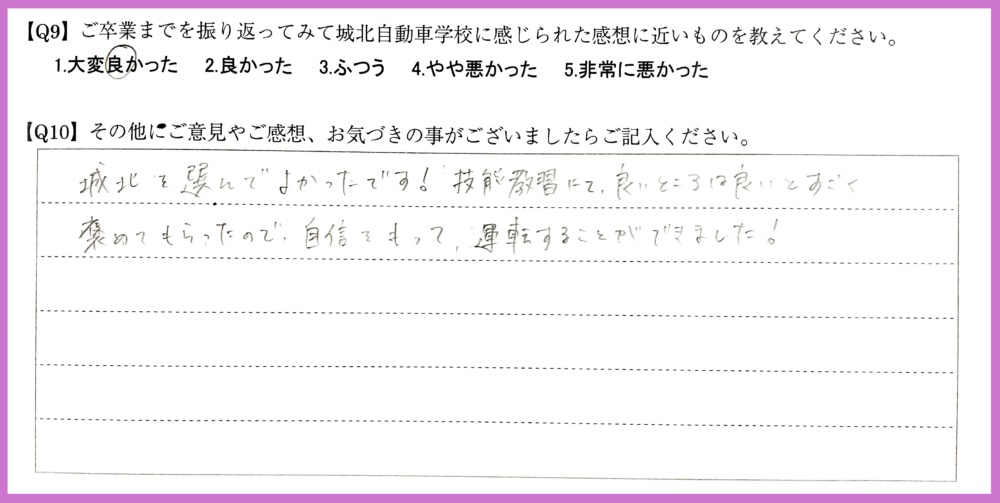 【Q9】ご卒業までを振り返ってみて城北自動車学校に感じられた感想に近いものを教えてください。
1.大変良かった 2.良かった 3.ふつう 4.やや悪かった 5.非常に悪かった
【Q10】その他にご意見やご感想、お気づきの事がございましたらご記入ください。
城北を選んでよかったです!技能教習にて、良いところは良いとすごく
褒めてもらったので、自信をもって、運転することができました!